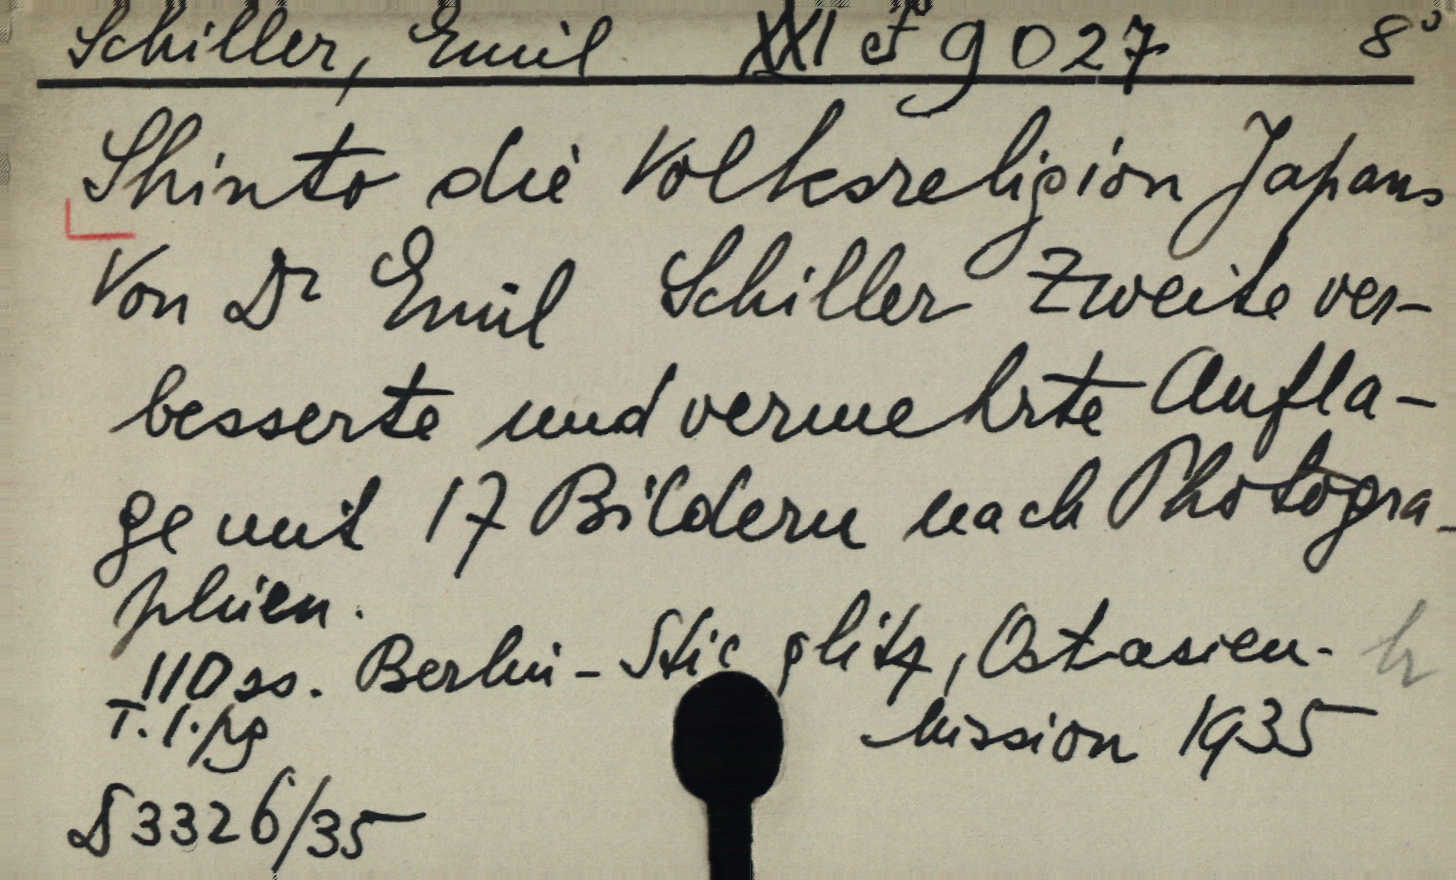 Schiller, Emil XXI F 9027 8°
Shinto die Volksreligion Japans
Von Dr Emil Schiller Zweite ver-
besserte und vermehrte Aufla-
ge mit 17 Bildern nach Photogra-
phien.
110 ss. Berlin-Stieglitz, Ostasien-
T. 1. pg Mission 1935
D 3326/35